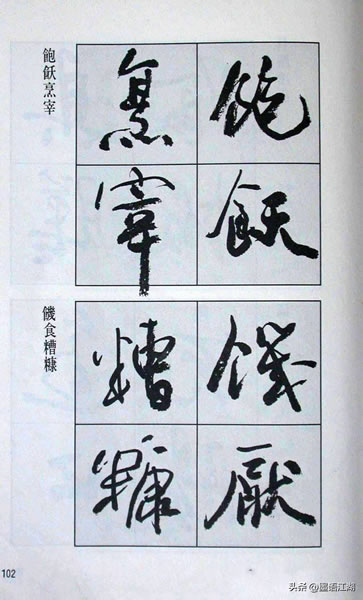 飽飫
烹宰
飽飫烹宰
饑厭
糟糠
饑食糟糠
102
头条 @语江湖